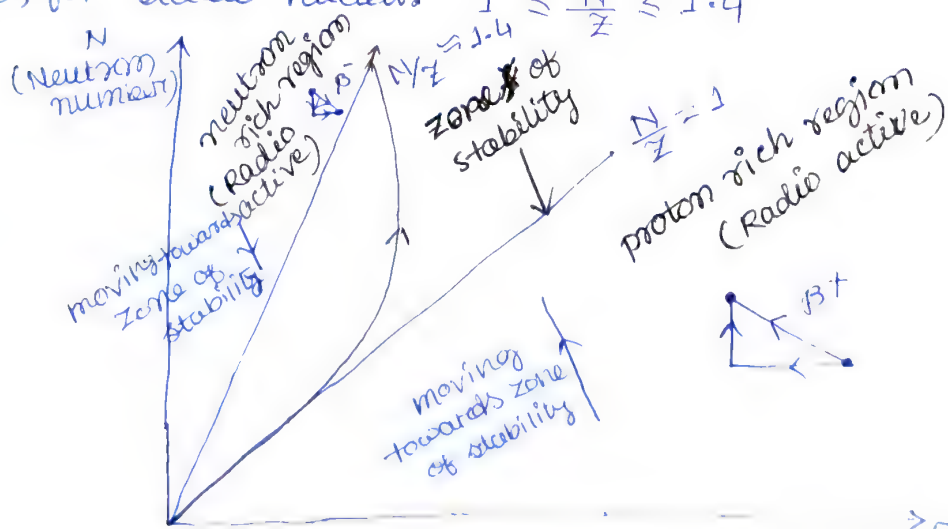 1 ≤ N/Z ≤ 1.4
N
(Neutron
number)
neutron
rich region
(Radio
active)
β⁻
N/Z ≈ 1.4
zone of
stability
N/Z = 1
proton rich region
(Radio active)
moving towards
zone of
stability
moving
towards zone
of stability
β+